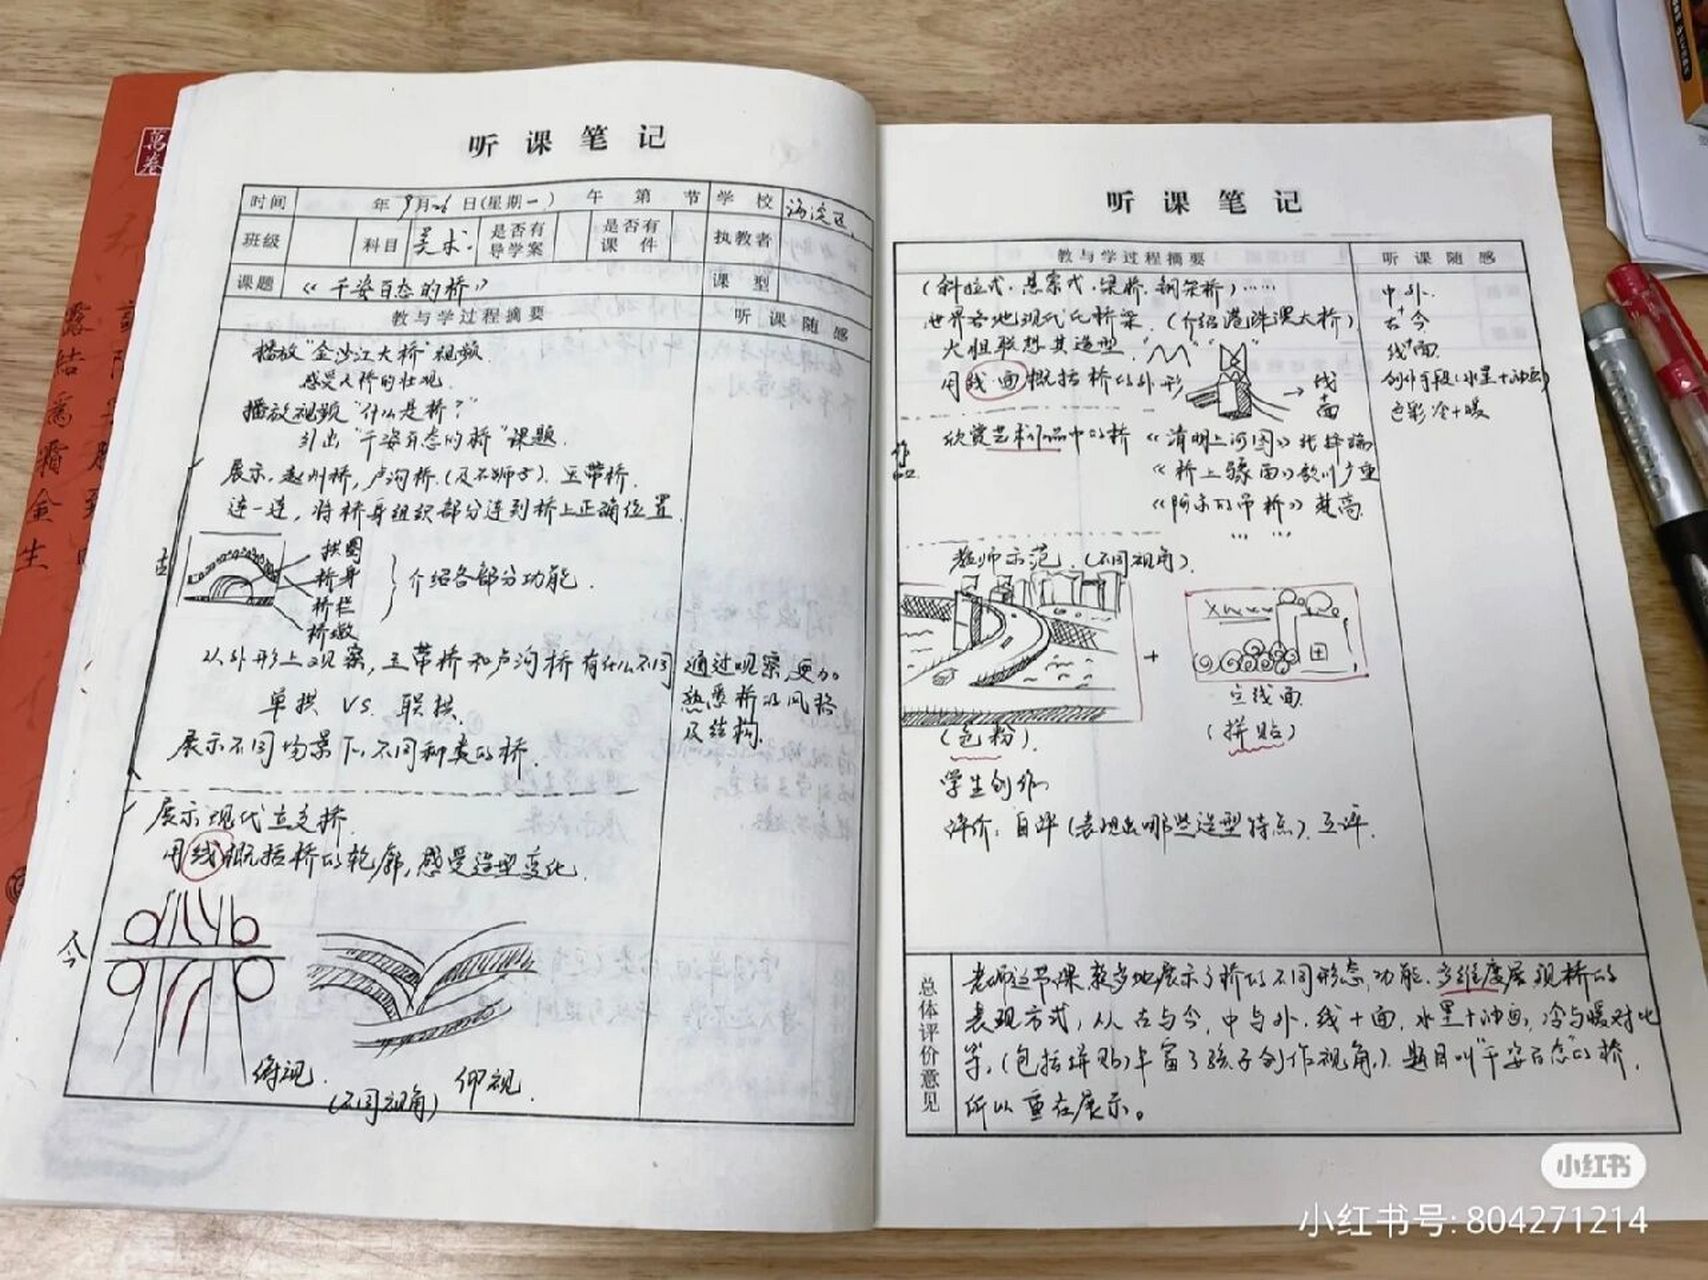 萬卷
露結為霜金生
听课笔记
时间 年9月26日(星期一) 午 第 节 学校 海淀区
班级 科目 美术. 是否有导学案 是否有课件 执教者
课题 《千姿百态的桥》 课型
教与学过程摘要 听课随感
播放“金沙江大桥”视频.
感受大桥的壮观.
播放视频“什么是桥?”
引出“千姿百态的桥”课题.
展示,赵州桥,卢沟桥.(及石狮子).玉带桥.
连一连,将桥身组织部分连到桥上正确位置.
古
拱圈
桥身
桥栏
桥墩
介绍各部分功能.
从外形上观察,玉带桥和卢沟桥有什么不同
单拱 VS. 联拱.
通过观察,更加
熟悉桥的风格
及结构.
展示不同场景下,不同种类的桥.
展示现代立交桥.
用线概括桥的轮廓,感受造型变化.
今
俯视.
(不同视角)
仰视.
听课笔记
教与学过程摘要 听课随感
(斜拉式·悬索式·梁桥·钢架桥)……
世界各地现代化桥梁.(介绍港珠澳大桥)
大胆联想其造型.
用线面概括桥的外形
→线
+
面
中外.
+
古今
线+面.
创作手段(水墨+油画)
色彩冷+暖
作品
欣赏艺术作品中的桥 《清明上河图》张择端
《桥上骤雨》歌川广重
《阿尔的吊桥》梵高
教师示范.(不同视角).
+
立线面.
(色粉).
(拼贴)
学生创作
评价:自评(表现出哪些造型特点).互评.
总体评价意见
老师这节课,整多地展示了桥的不同形态,功能.多维度展现桥的
表现方式,从古与今,中与外.线+面,水墨+油画,冷与暖对比
等,(包括拼贴)丰富了孩子创作视角.).题目叫“千姿百态”的桥,
所以重在展示。
小红书
小红书号:804271214